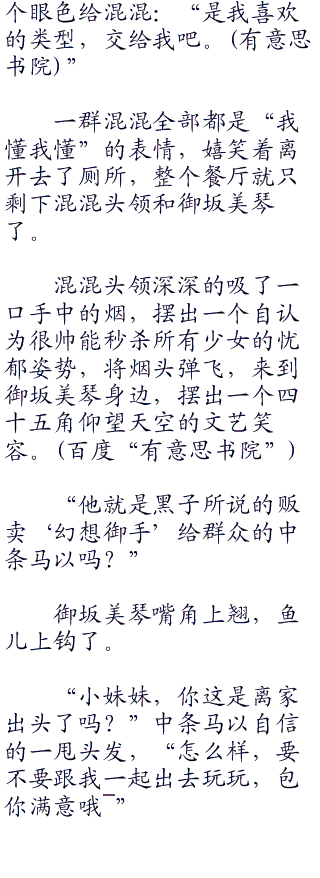 个眼色给混混：“是我喜欢
的类型，交给我吧。(有意思
书院)”
一群混混全部都是“我
懂我懂”的表情，嬉笑着离
开去了厕所，整个餐厅就只
剩下混混头领和御坂美琴
了。
混混头领深深的吸了一
口手中的烟，摆出一个自认
为很帅能秒杀所有少女的忧
郁姿势，将烟头弹飞，来到
御坂美琴身边，摆出一个四
十五角仰望天空的文艺笑
容。(百度“有意思书院”)
“他就是黑子所说的贩
卖‘幻想御手’给群众的中
条马以吗？”
御坂美琴嘴角上翘，鱼
儿上钩了。
“小妹妹，你这是离家
出头了吗？”中条马以自信
的一甩头发，“怎么样，要
不要跟我一起出去玩玩，包
你满意哦¯”